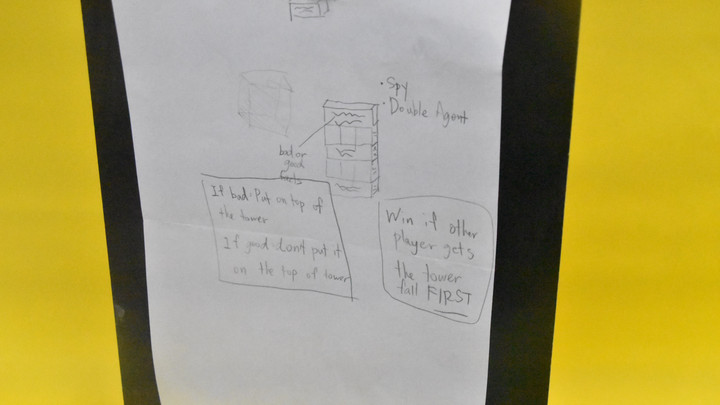 • Spy
• Double Agent
bad or
good
facts
If bad: Put on top of
the tower
If good: dont put it
on the top of tower
Win if other
player gets
the tower
fall FIRST